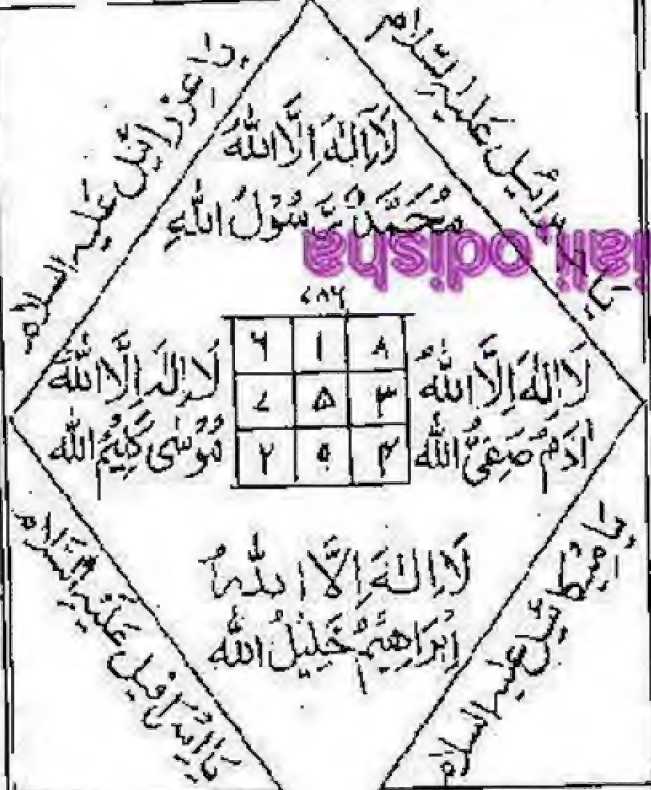 یا جبرائیل علیہ السلام
یا عزرائیل علیہ السلام
لَا اِلٰهَ اِلَّا اللّٰهُ
مُحَمَّدٌ رَّسُوْلُ اللّٰهِ
odisha
۷۸۶
۶ ۱ ۸
۷ ۵ ۳
۲ ۹ ۴
لَا اِلٰهَ اِلَّا اللّٰهُ
اٰدَمُ صَفِیُّ اللّٰه
لَا اِلٰهَ اِلَّا اللّٰهُ
مُوْسٰی کَلِیْمُ اللّٰه
لَا اِلٰهَ اِلَّا اللّٰهُ
اِبْرَاهِیْمُ خَلِیْلُ اللّٰه
یا مِیکائیل علیہ السلام
یا اِسرافیل عَلَیْہِ السَّلَام